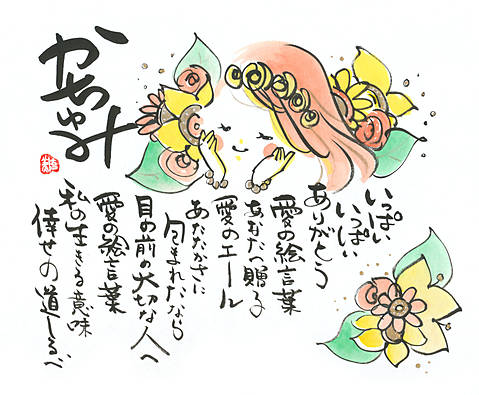 かちゅみ
いっぱい
いっぱい
ありがとう
愛の絵言葉
あなたへ贈る
愛のエール
あたたかさに
包まれたなら
目の前の大切な人へ
愛の絵言葉
私の生きる意味
倖せの道しるべ